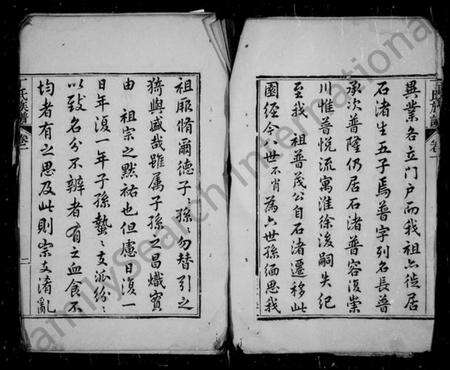 異業各立門戶而我祖六徙居
石渚生五子焉普字列名長普
承次普隆仍居石渚普容復崇
川惟普悦流寓淮徐後嗣失紀
至我 祖普茂公自石渚遷移此
園經今八世不肖為六世孫緬思我
氏族譜 卷一
祖服脩爾德子ミ孫ミ勿替引之
猗與盛哉雖属子孫之昌熾實
由 祖宗之黙祐也但慮日復一
日年復一年子孫蟄ミ支派紛ミ
以致名分不辨者有之血食不
均者有之思及此則宗支淆亂
氏族譜 卷一
二
FamilySearch International